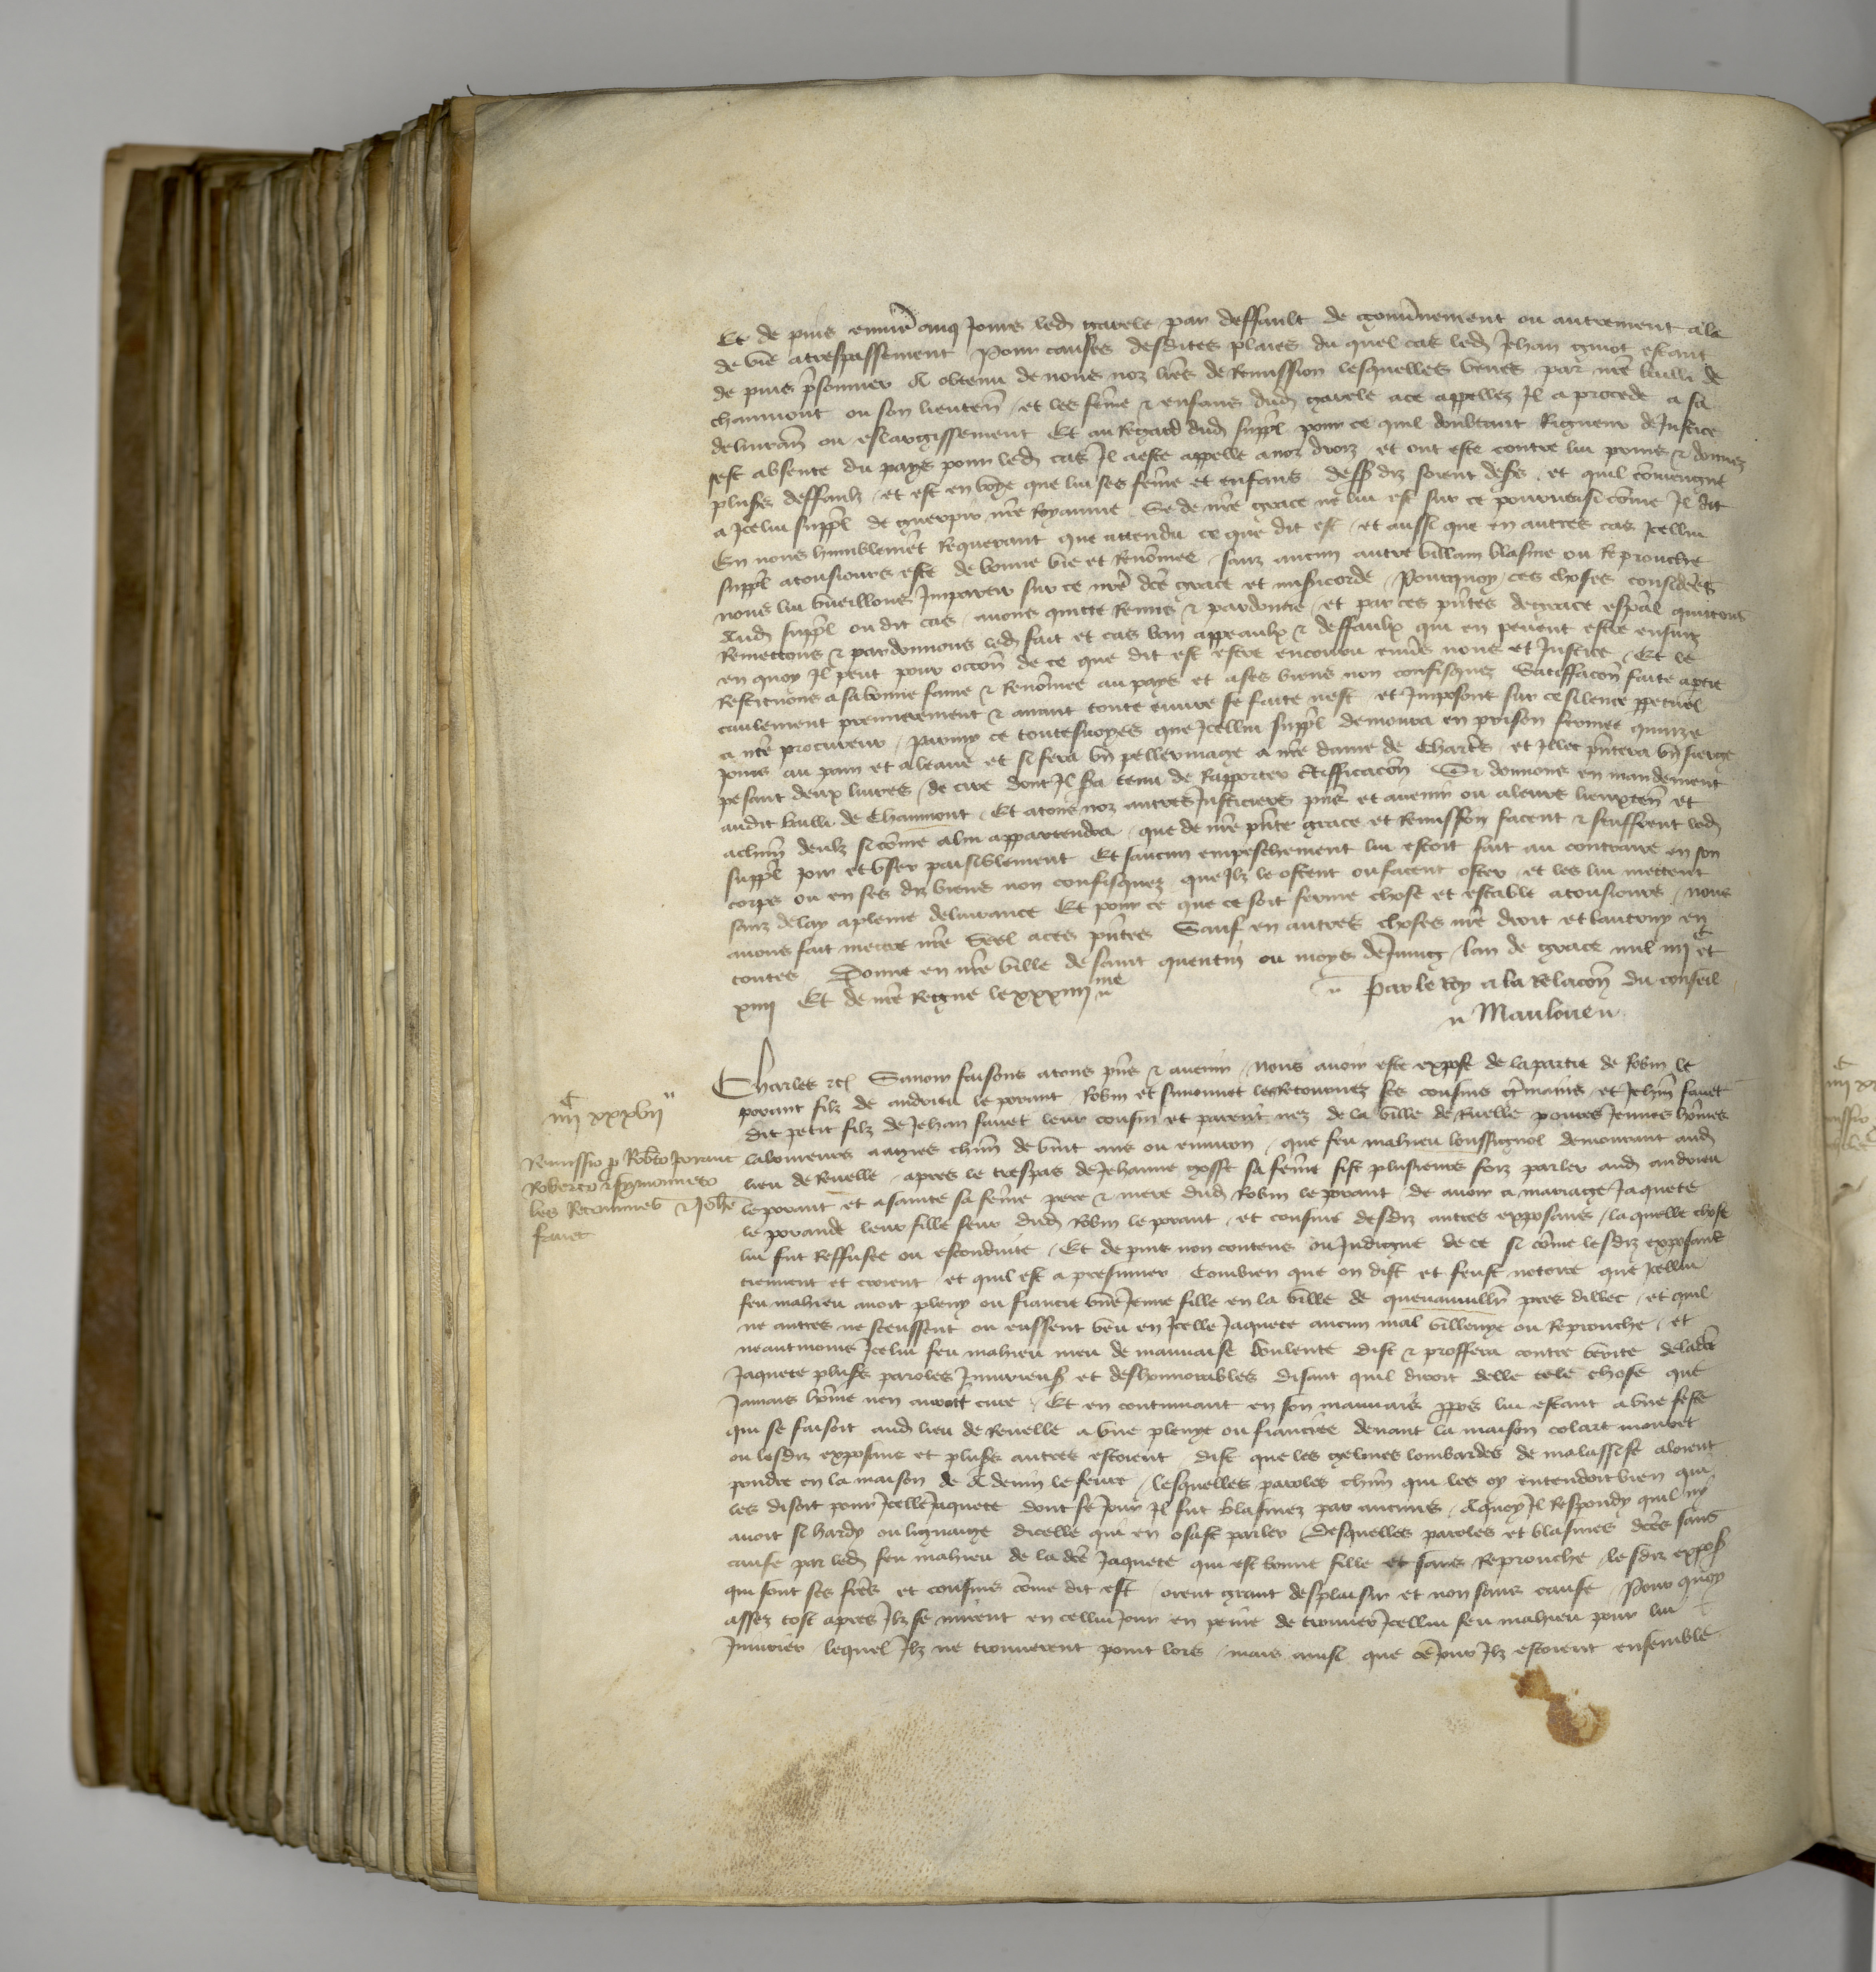 Et de puis enuiron cinq Jours led gavele par deffault de gouunement ou autrement ala
de vie a trespassement Pour causes desdites plaies du quel cas led Jehan guiot estant
de puis prisonnier A obtenu de nous noz lres de Remission lesquelles veues par nre bailli de
chaumont ou son lieuten et les feme & enfans dud gavele ace appellez Il a procede a sa
deliurance ou eslargissement Et au Regard dud suppl pour ce quil doubtant Rigueur de Justice
sest absente du pays pour led cas Il a este appelle a noz droiz et ont este contre lui prins & donnez
pluss deffaulz et est en voye que lui ses feme et enfans dess diz soient desers et quil conuengne
a Icelui suppl de guerpir nre Royaume Se de nre grace ne lui est sur ce pourueu si come Il dit
En nous humblemet Requerant que attendu ce que dit est et aussi que en autres cas Icellui
suppl a tousiours este de bonne vie et Renomee sanz aucun autre villain blasme ou Reprouche
nous lui vueillons Impartir sur ce nre dce grace et misicorde Pourquoy ces choses considerees
Aud suppl ou dit cas auons quitte Remis & pardonne et par ces pntes de grace espal quittons
Remettons & pardonnons led fait et cas ban appeaulx & deffaulx qui en peuent estre ensuiz
en quoy Il peut pour occon de ce que dit est estre encouru enuers nous et Justice Et le
Restituons a sa bonne fame & Renomee au pays et a ses biens non confisquez Satiffacon faite a ptie
ciuilement premierement & auant toute euure se faite nest et Imposons sur ce silence ppetuel
a nre procureur parmy ce toutesuoyes que Icellui suppl demoura en prison fermee quinze
Jours au pain et a leaue et si fera vn pellerinage a nre dame de Chartres et Illec pntera vn sierge
pesant deux liures de cire dont Il sera tenu de Rapporter certifficacon Si donnons en mandement
audit bailli de Chaumont Et atous noz autres Justiciers pns et auenir ou aleurs lieuxten et
achun deulz si come alui appartendra que de nre pnte grace et Remission facent & seuffrent led
suppl joir et vser paisiblement Et saucun empeschement lui estoit fait au contraire en son
corps ou en ses diz biens non confisquez que Ilz le ostent ou facent oster et les lui mettent
sanz delay a pleine deliurance Et pour ce que ce soit ferme chose et estable a tousiours nous
auons fait mettre nre Seel aces pntes Sauf en autres choses nre droit et lautruy en
toutes Donne en nre ville de saint quentin ou moys de Juing lan de grace mil iiiic et
xiiii Et de nre Regne le xxxiiiime Par le Roy a la Relacon du conseil
Mauloue
iiiic xxxvii
Remissio p Robto porant
Roberto & symonneto
les Retournes & Johe
fauet
Charles etc Sauoir faisons atous pns & auenir Nous auoir este expose de la partie de Robin le
porant filz de andrieu le porant Robin et simonnet les Retournez ses cousins germains et Jehan fauet
dit petit filz de Jehan fauet leur cousin et parent nez de la ville de Ruelle poures Jeunes homes
laboureurs aagies chun de vint ans ou enuiron que feu mahieu loussignol demourant aud
lieu de Ruelle apres le trespas de Jehanne gosse sa feme fist plusieurs foiz parler aud andrieu
le porant et a sainte sa feme pere & mere dud Robin le porant de auoir a mariage Jaquete
le porande leur fille seur dud Robin le porant et cousine desdiz autres exposans laquelle chose
lui fut Reffusee ou escondiute Et de puis non contens ou Indigne de ce si come lesdiz exposans
tiennent et croient et quil est a presumer Combien que on dist et feust notoire que Icellui
feu mahieu auoit pleuy ou fiancie vne Jeune fille en la ville de queuauuiller pres dillec et quil
ne autres ne sceussent ou eussent veu en Icelle Jaquete aucun mal villenye ou Reprouche et
neantmoins Icelui feu mahieu meu de mauuaise voulente dist & proffera contre verite deladce
Jaquete pluss paroles Iniurieuses et deshonnorables disant quil diroit delle tele chose que
Jamais home nen auroit cure Et en continuant en son mauuais ppos lui estant a vne feste
qui se faisoit aud lieu de Reuelle a vne pleuye ou fiancee deuant la maison colart mouret
ou lesdiz exposans et pluss autres estoient dist que les gelines lombardes de malassise aloient
pondre en la maison de Adenin le feure lesquelles paroles chun qui les oy entendoit bien qui
les disoit pour Icelle Jaquete dont se Jour Il fut blasmez par aucuns Aquoy Il Respondy quil ny
auoit si hardy ou lignaige dicelle qui en osast parler Desquelles paroles et blasmes dces sans
cause par led feu mahieu de la dce Jaquete qui est bonne fille et sans Reprouche lesdiz expos
qui sont ses freres et cousins come dit est orent grant desplaisir et non sans cause Pour quoy
assez tost apres Ilz se mirent en cellui Jour en peine de trouuer Icellui feu mahieu pour lui
Iniurier lequel Ilz ne trouuerent point lors mais ainsi que ce Jour Ilz estoient ensemble